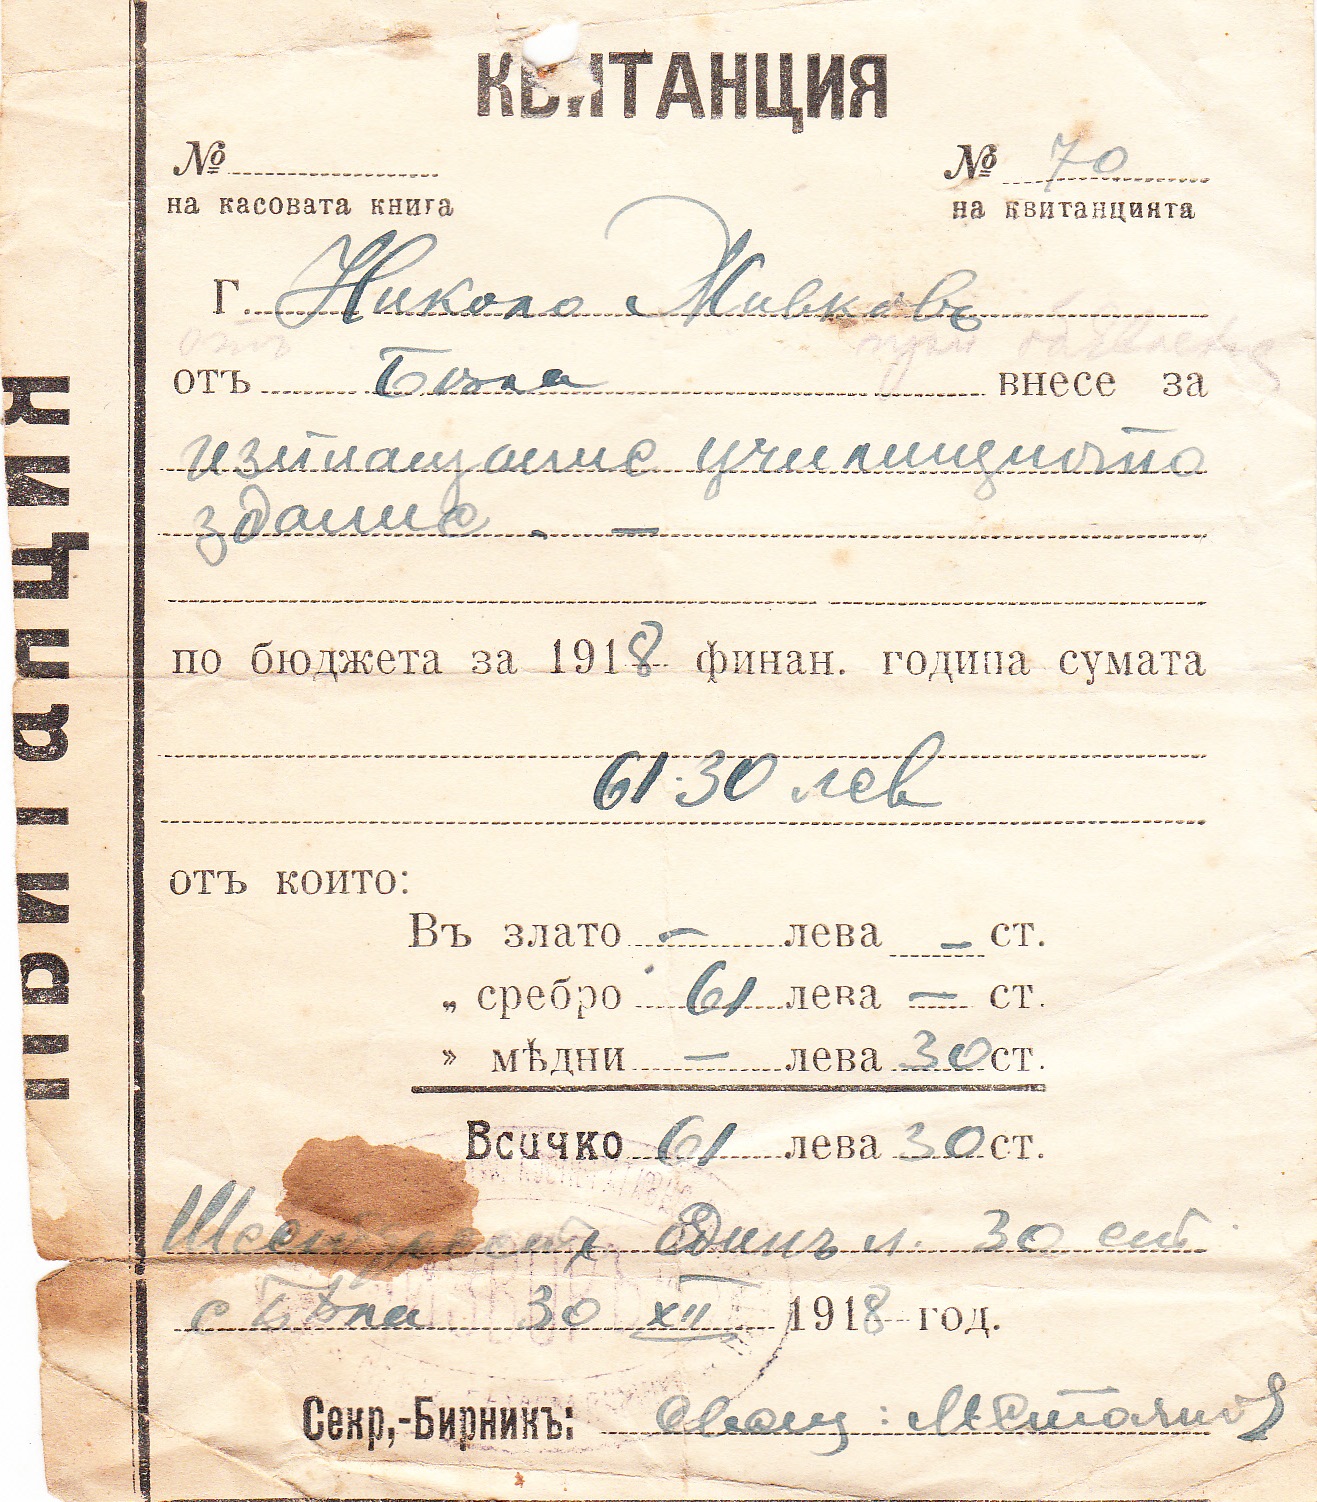 КВИТАНЦИЯ
№ № 70
на касовата книга на квитанцията
Г. Никола Живковъ
отъ Бѣла внесе за
изплащание училищното
здание. —
по бюджета за 1918 финан. година сумата
61·30 лев
отъ които:
Въ злато — лева — ст.
„ сребро 61 лева — ст.
» мѣдни — лева 30 ст.
Всичко 61 лева 30 ст.
Шестдесетъ Единъ л. 30 ст.
с Бѣла 30 XII 1918 год.
Секр,-Бирникъ:
КВИТАНЦИЯ